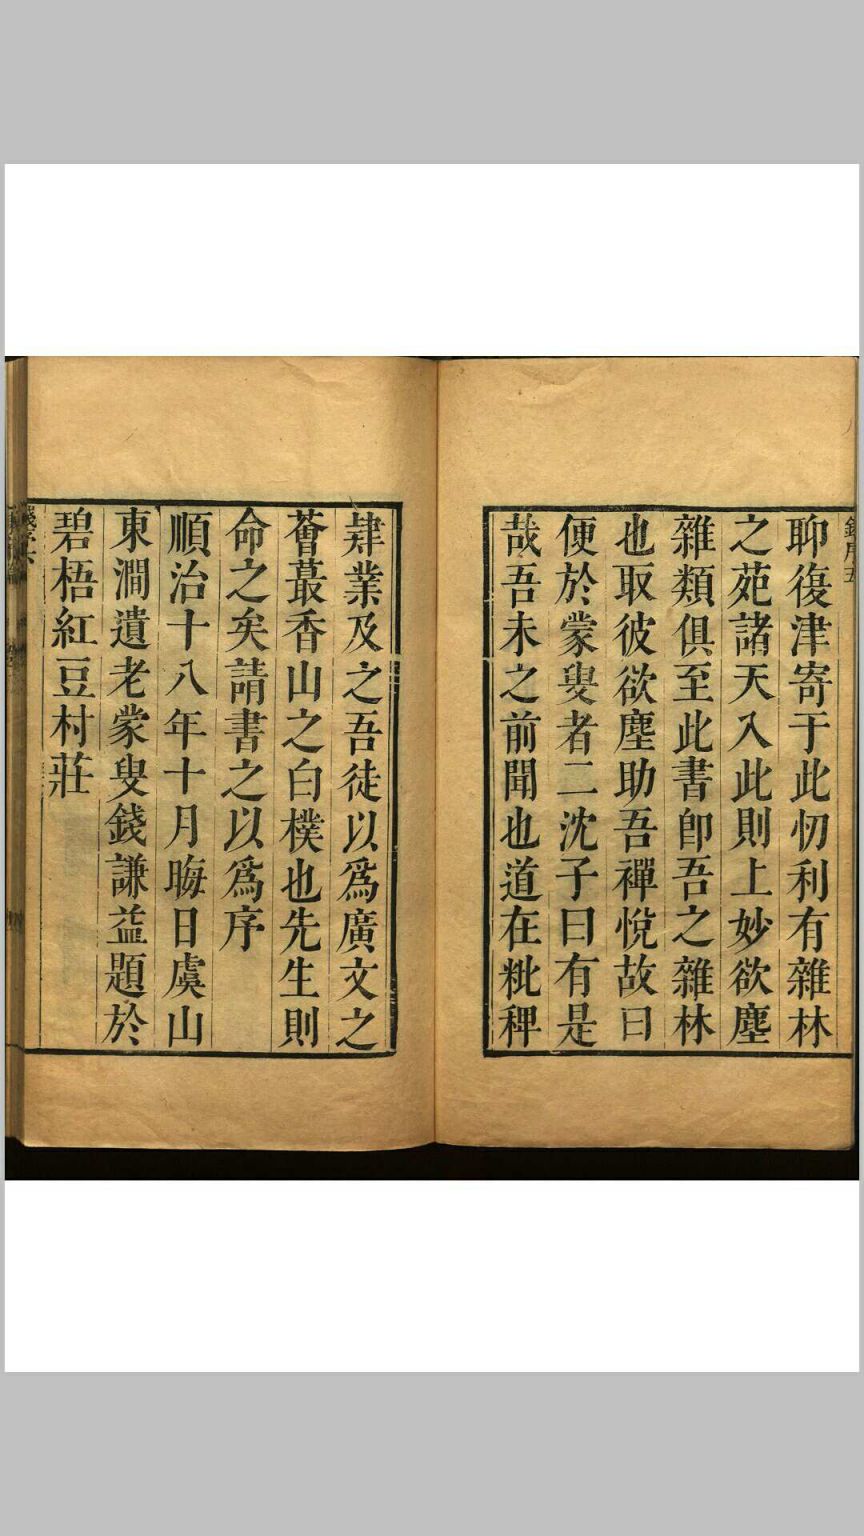 錢序五
聊復津寄于此忉利有雜林
之苑諸天入此則上妙欲塵
雜類俱至此書卽吾之雜林
也取彼欲塵助吾禪悅故曰
便於蒙叟者二沈子曰有是
哉吾未之前聞也道在粃稗
肄業及之吾徒以爲廣文之
薈蕞香山之白樸也先生則
命之矣請書之以爲序
順治十八年十月晦日虞山
東澗遺老蒙叟錢謙益題於
碧梧紅豆村莊